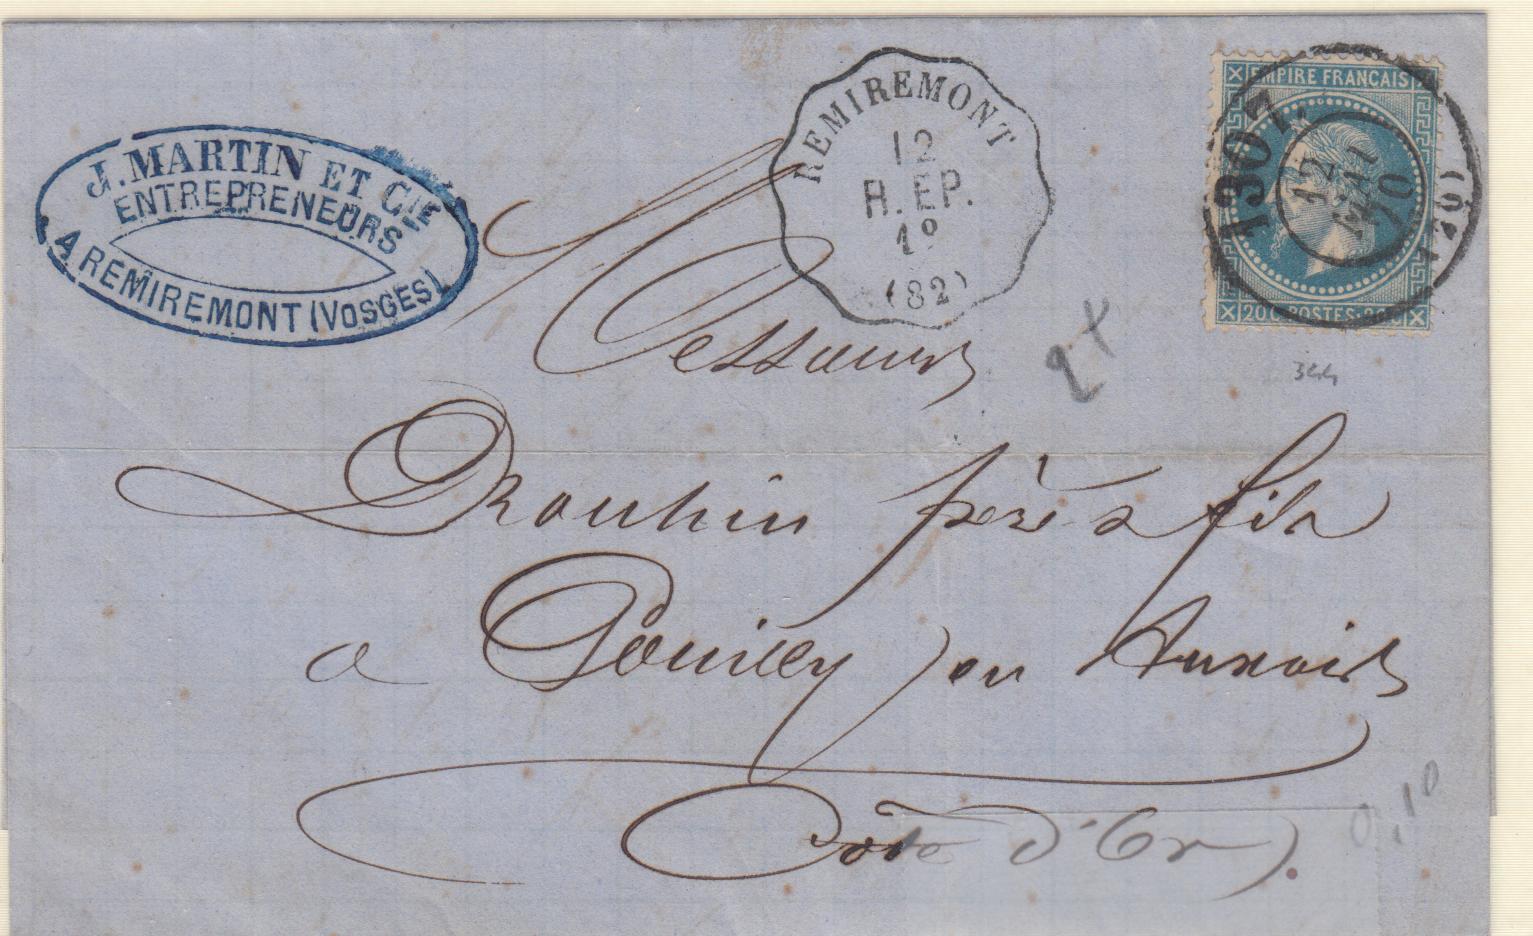 J. MARTIN ET CIE
ENTREPRENEURS
A REMIREMONT (VOSGES)
REMIREMONT
12
R. EP.
1º
(82)
EMPIRE FRANÇAIS
20 C POSTES 20 C
1307.
12
MAI
70
344
Messieurs
Drouhin père & fils
a Pouilly en Auxois
Cote d'Or).
0,10